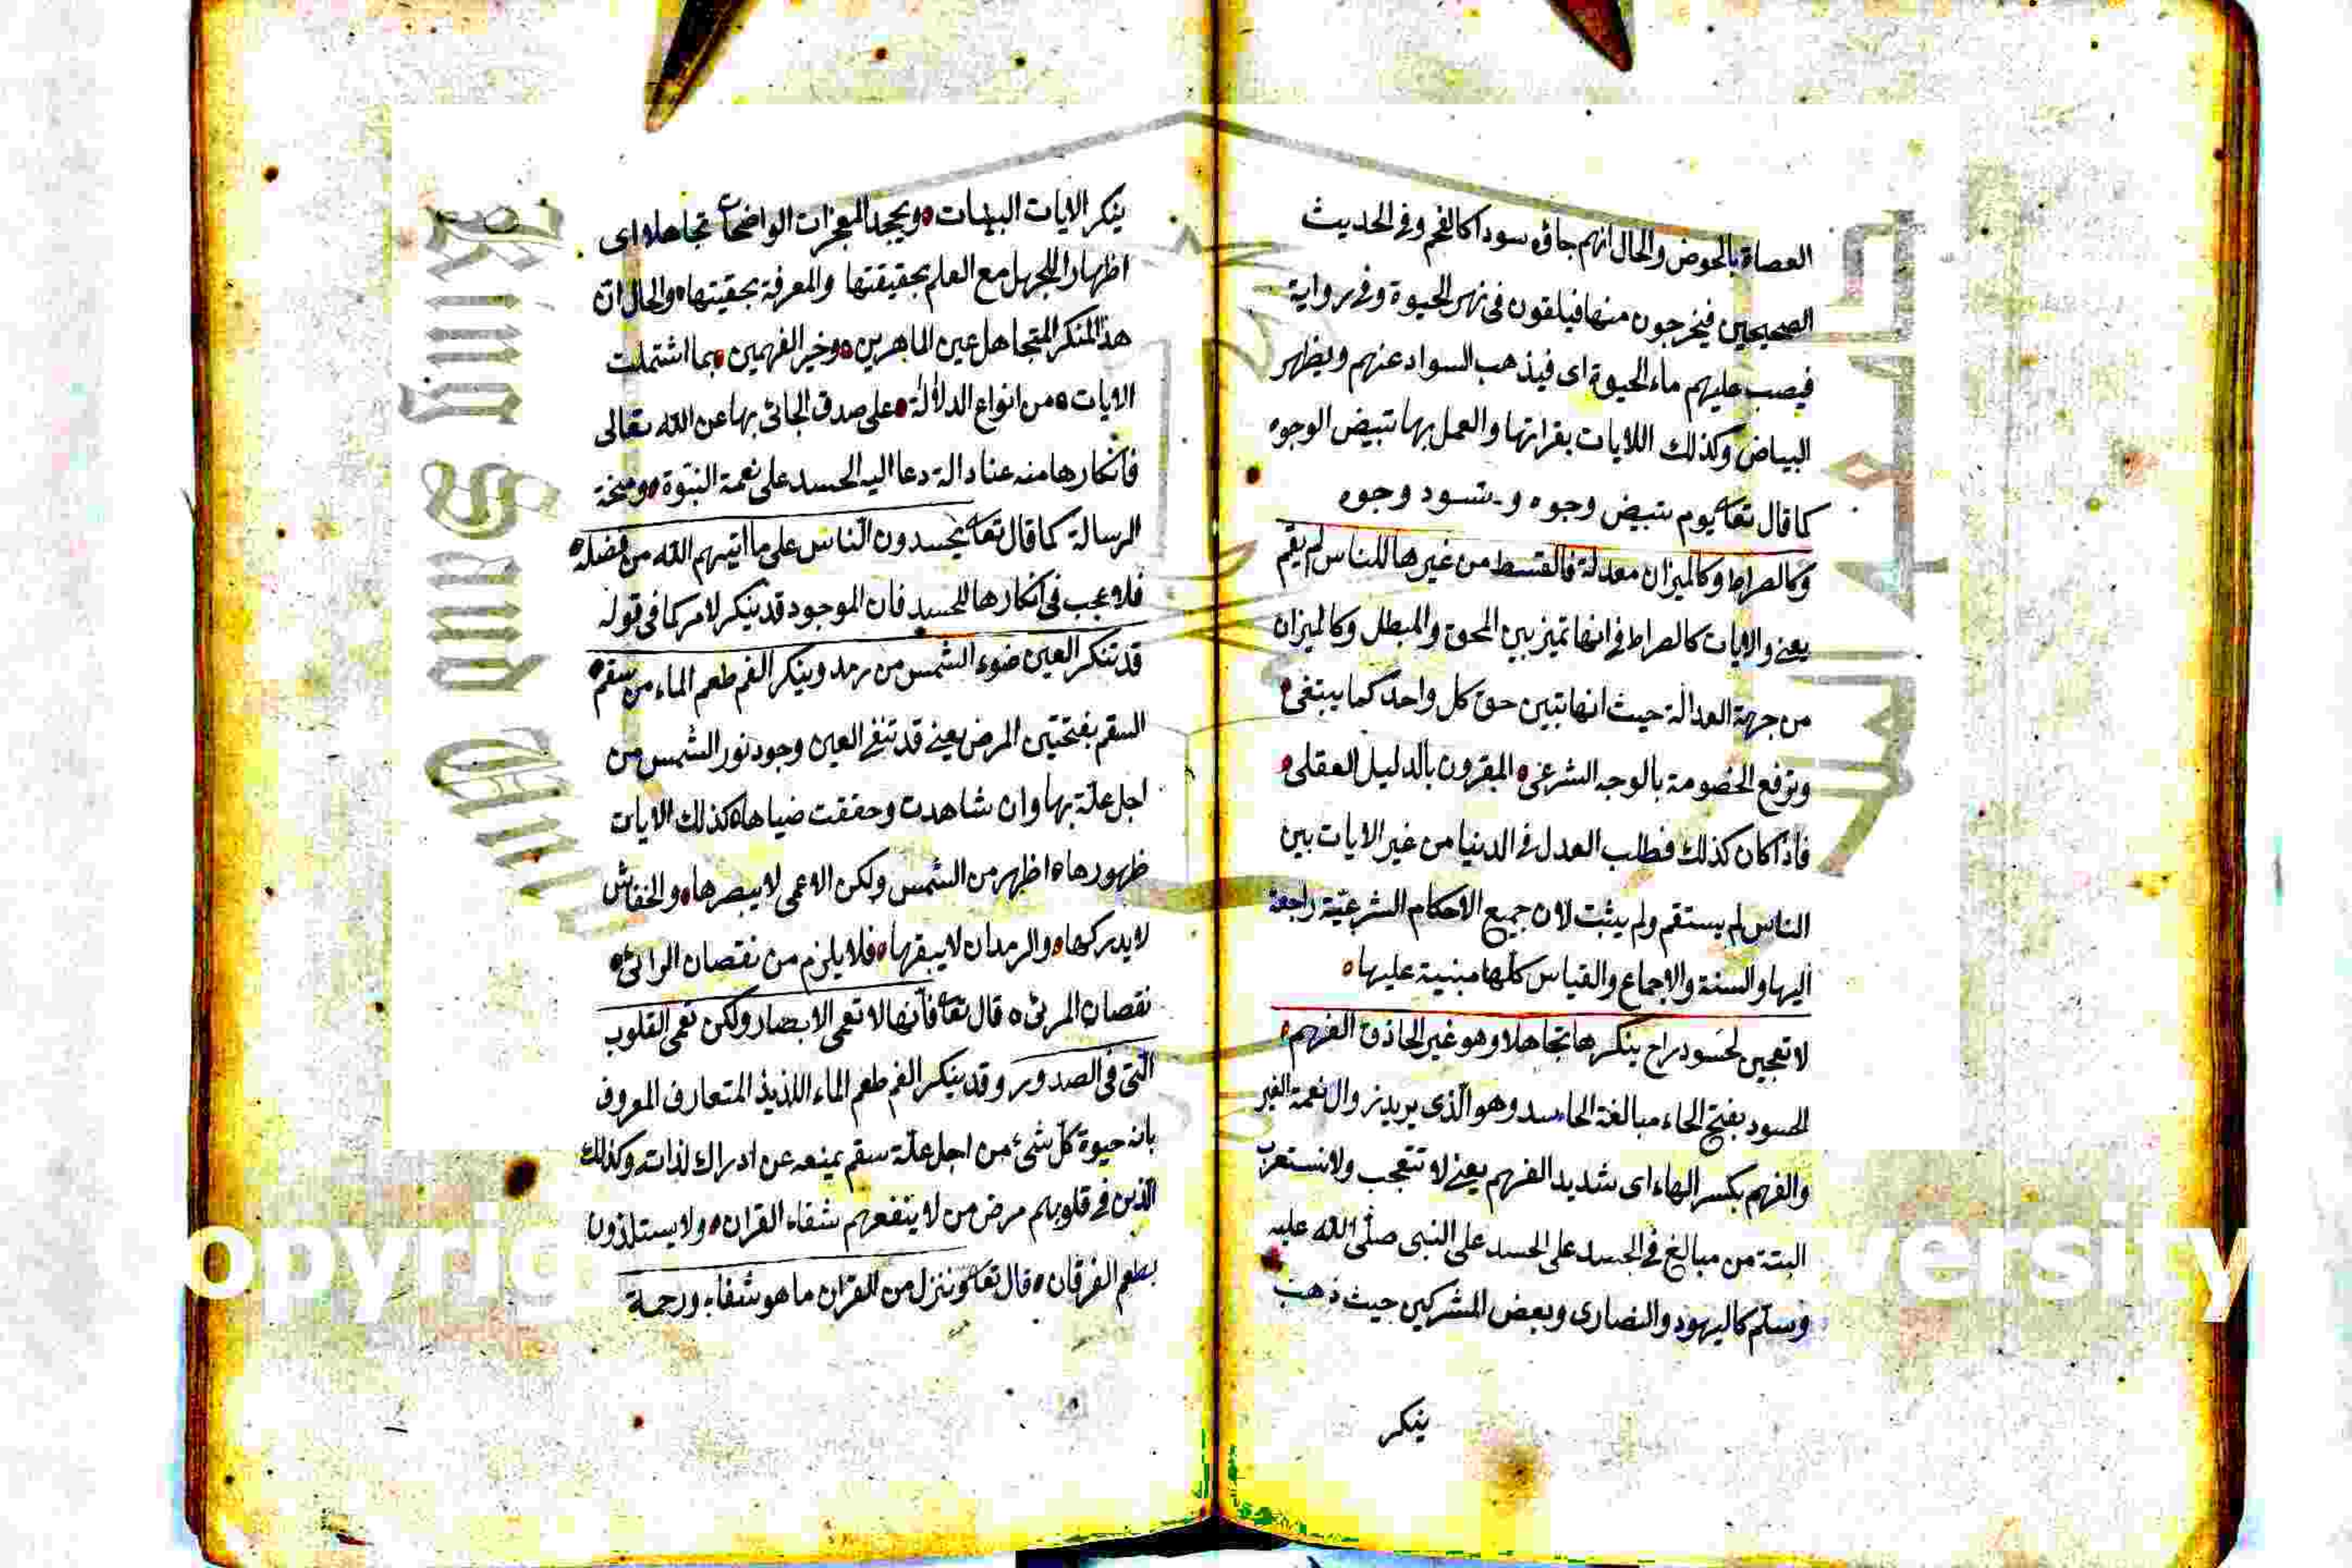 العصاة بالحوض والحال انهم جاؤه سودا كالفحم وفى الحديث
الصحيحين فيخرجون منها فيلقون فى نهر الحيوة وفى رواية
فيصب عليهم ماء الحيوة اى فيذهب السواد عنهم ويظهر
البياض وكذلك اللايات بقرانها والعمل بها تبيض الوجوه
كما قال تعا يوم تبيض وجوه و تسود وجوه
وكالصراط وكالميزان معدلة فالقسط من غيرها للناس لم يقم
يعنى والايات كالصراط فى انها تميز بين المحق والمبطل وكالميزان
من جهة العدالة حيث انها تبين حق كل واحد كما يبتغى
وترفع الخصومة بالوجه الشرعى المقرون بالدليل العقلى
فاذا كان كذلك فطلب العدل فى الدنيا من غير الايات بين
الناس لم يستقم ولم يثبت لان جميع الاحكام الشرعية راجعة
اليها والسنة والاجماع والقياس كلها مبنية عليها
لا تعجبن لحسود راح ينكرها تجاهلا وهو غير الحاذق الفهم
الحسود بفتح الحاء مبالغة الحاسد وهو الذى يريد زوال نعمة الغير
والفهم بكسر الهاء اى شديد الفهم يعنى لا تتعجب ولا تستغرب
البتة من مبالغ فى الجسد على الحسد على النبى صلى الله عليه
وسلم كاليهود والنصارى وبعض المشركين حيث ذهب
ينكر
ينكر الايات البينات ويجحد المعجزات الواضحات تجاهلا اى
اظهارا للجهل مع العلم بحقيقتها والمعرفة بحقيتها والحال ان
هذا المنكر المتجاهل عين الماهرين وخير الفهمين بما اشتملت
الايات من انواع الدلالة على صدق الجائى بها عن الله تعالى
فانكارها منه عنادا له دعا اليه الحسد على نعمة النبوة ومنحة
الرسالة كما قال تعا يحسدون الناس على ما اتيهم الله من فضله
فلا عجب فى انكارها للحسد فان الموجود قد ينكر لامر كما فى قوله
قد تنكر العين ضوء الشمس من رمد وينكر الفم طعم الماء من سقم
السقم بفتحتين المرض يعنى قد تنفى العين وجود نور الشمس من
اجل علة بها وان شاهدت وحققت ضياها كذلك الايات
ظهورها اظهر من الشمس ولكن الاعمى لا يبصرها والخفاش
لا يدركها والرمدان لا يبقرها فلا يلزم من نقصان الرائى
نقصان المرئى قال تعا فانها لا تعمى الابصار ولكن تعمى القلوب
التى فى الصدور وقد ينكر الفم طعم الماء اللذيذ المتعارف المعروف
بانه حيوة كل شئ من اجل علة سقم يمنعه عن ادراك لذاته وكذلك
الذين فى قلوبهم مرض من لا ينفعهم شفاء القران ولا يستلذون
بطعم الفرقان قال تعا وننزل من القران ما هو شفاء ورحمة
King Saud
opyrig
versity